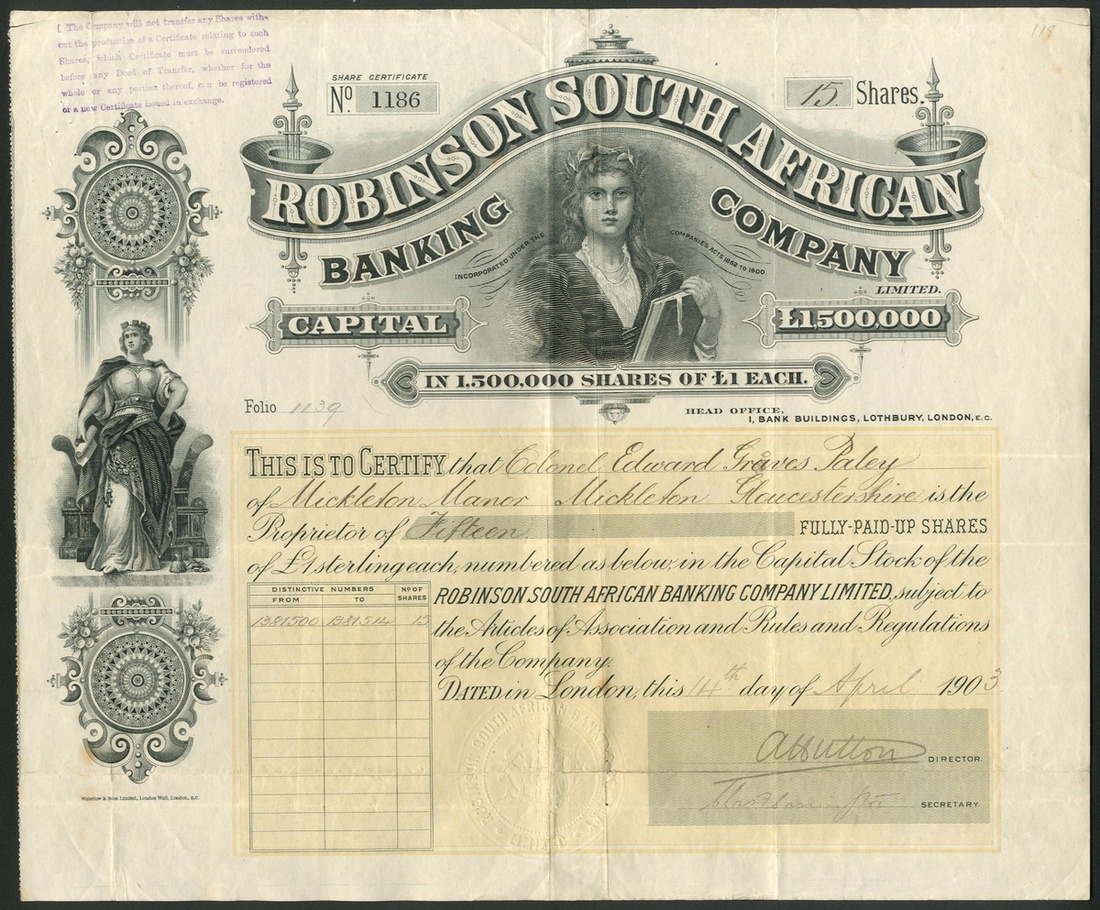 ( The Company will not transfer any Shares with-
out the production of a Certificate relating to such
Shares, which Certificate must be surrendered
before any Deed of Transfer, whether for the
whole or any portion thereof, can be registered
or a new Certificate issued in exchange.
118
SHARE CERTIFICATE
No 1186
15 Shares.
ROBINSON SOUTH AFRICAN
BANKING COMPANY
LIMITED.
INCORPORATED UNDER THE COMPANIES ACTS 1862 TO 1900.
CAPITAL £1,500,000
IN 1,500,000 SHARES OF £1 EACH.
Folio 1139
HEAD OFFICE,
1, BANK BUILDINGS, LOTHBURY, LONDON, E.C.
THIS IS TO CERTIFY that Colonel Edward Graves Paley
of Mickleton Manor Mickleton Gloucestershire is the
Proprietor of Fifteen FULLY-PAID-UP SHARES
of £1 sterling each, numbered as below, in the Capital Stock of the
ROBINSON SOUTH AFRICAN BANKING COMPANY LIMITED, subject to
the Articles of Association and Rules and Regulations
of the Company.
DATED in London, this 14th day of April 1903
DISTINCTIVE NUMBERS
FROM TO
No OF SHARES
1381500 1381514 15
ROBINSON SOUTH AFRICAN BANKING COMPANY
LIMITED
AHutton
DIRECTOR.
SECRETARY.
Waterlow & Sons Limited, London Wall, London, E.C.